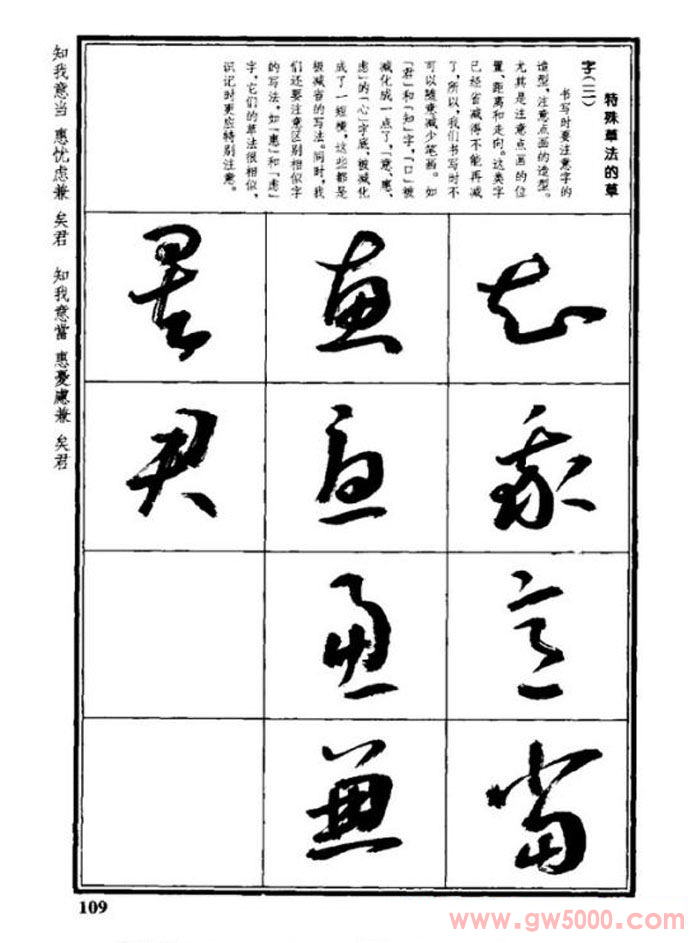 特殊草法的草
字(三)
书写时要注意字的
造型，注意点画的造型。
尤其是注意点画的位
置、距离和走向。这类字
已经省减得不能再减
了，所以，我们书写时不
可以随意减少笔画。如
“君”和“知”字，“口”被
减化成一点了，“意、惠、
虑”的“心”字底，被减化
成了一短横，这些都是
极减省的写法。同时，我
们还要注意区别相似字
的写法，如“惠”和“虑”
字，它们的草法很相似，
识记时更应特别注意。
知我意當
惠憂慮兼
矣君
知我意当 惠忧虑兼 矣君 知我意當 惠憂慮兼 矣君
109
www.gw5000.com